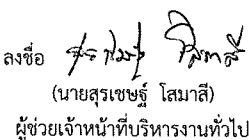 ลงชื่อ
(นายสุรเชษฐ์ โสมาสี)
ผู้ช่วยเจ้าหน้าที่บริหารงานทั่วไป